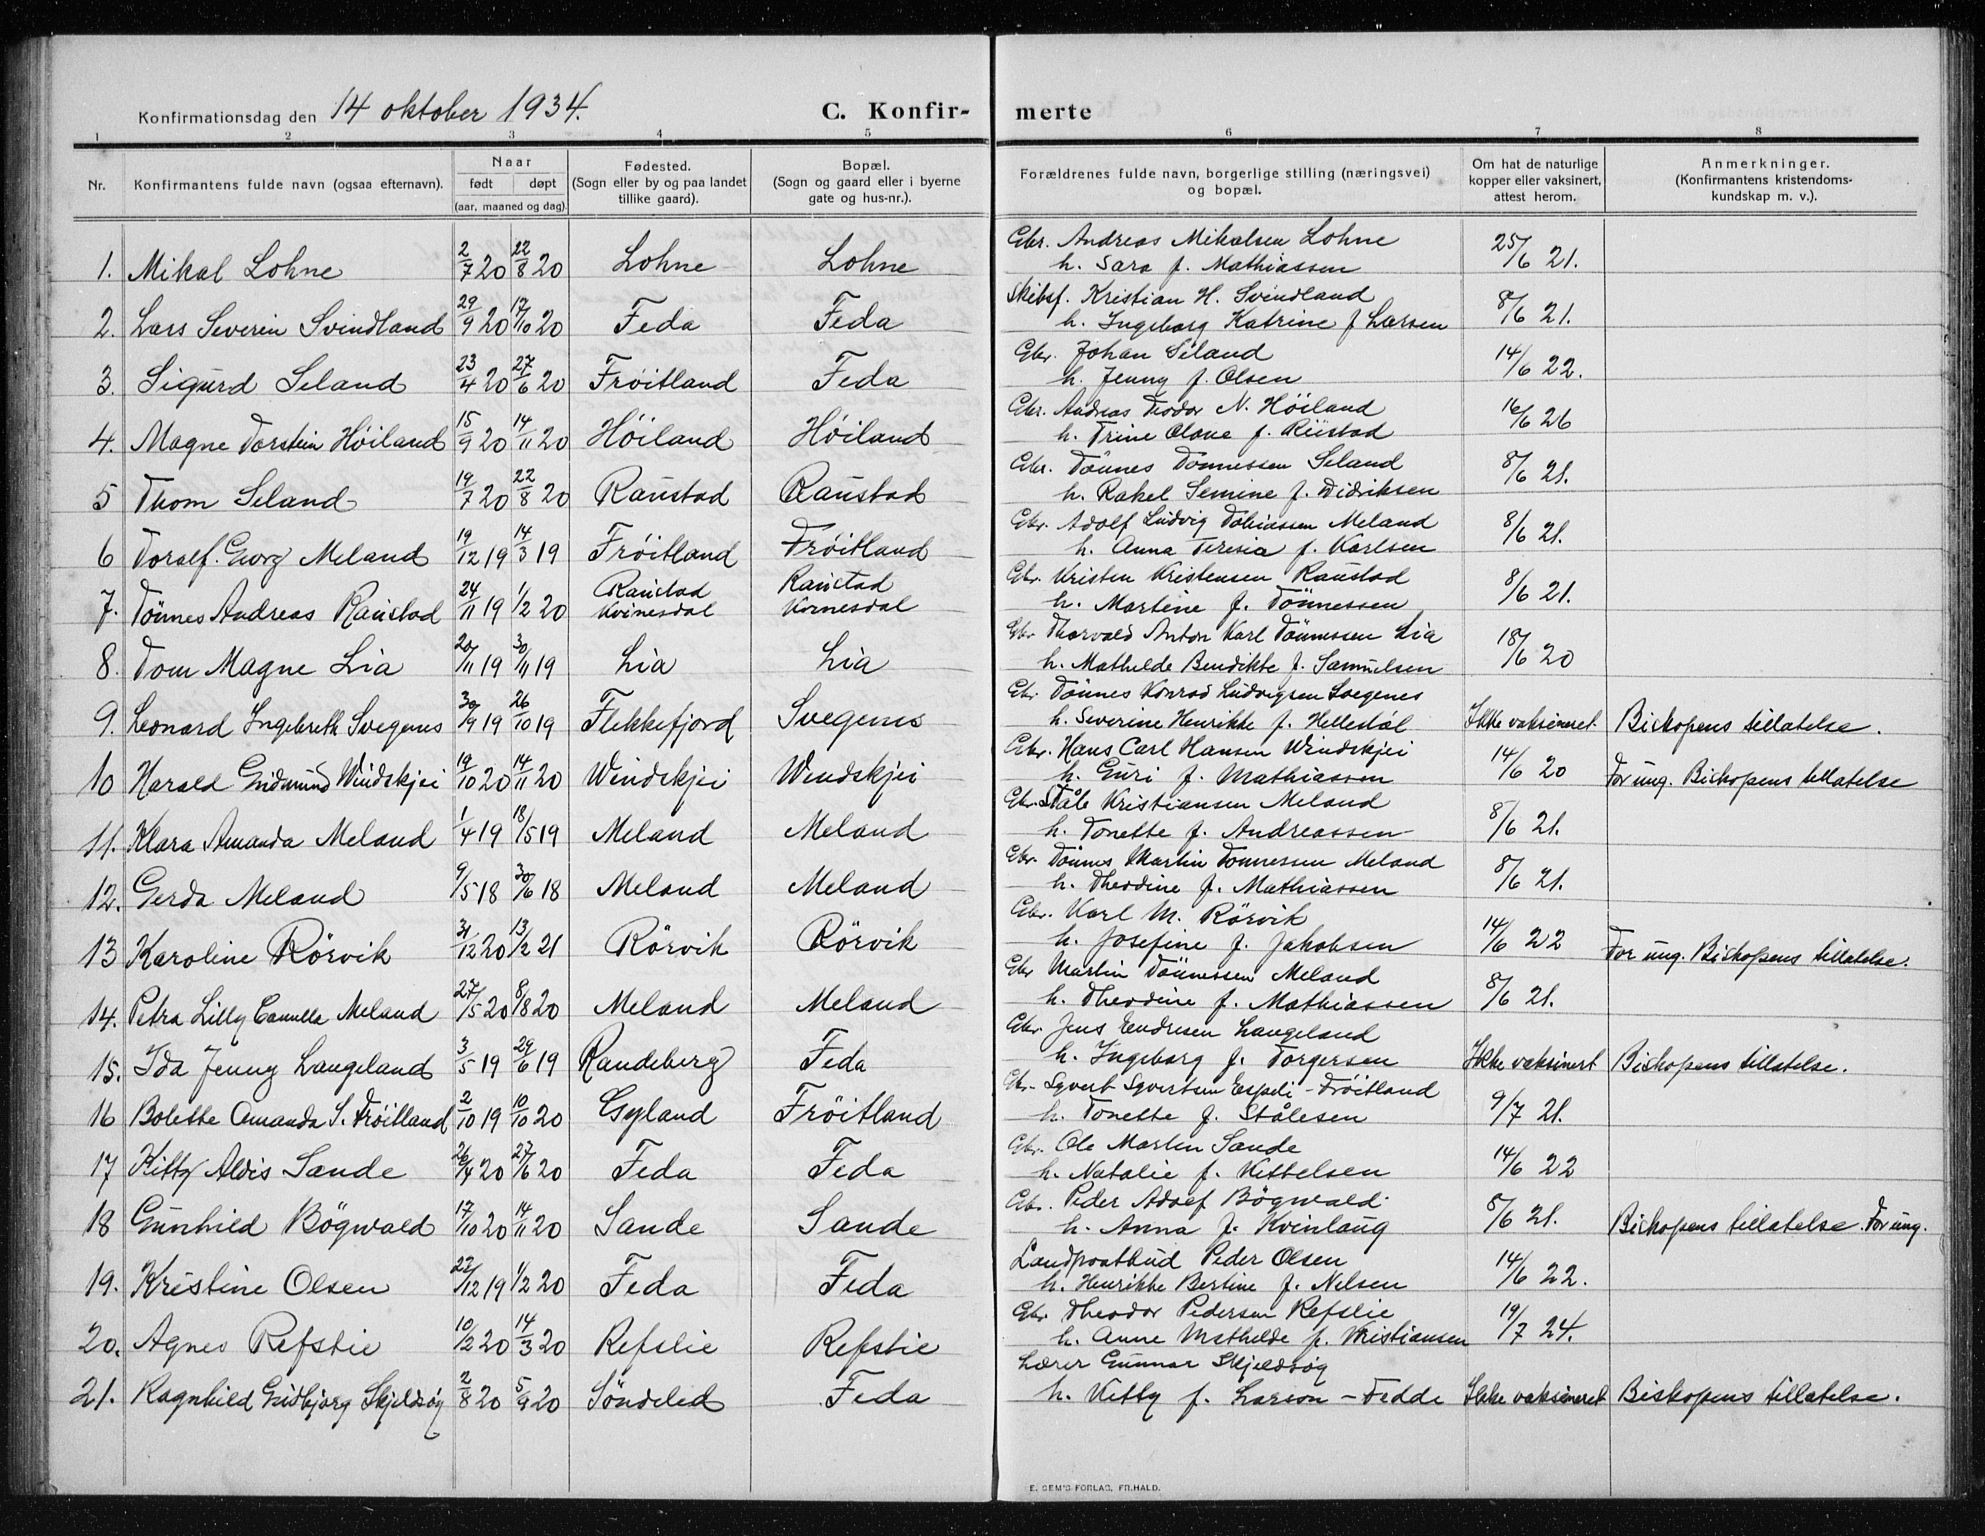 Konfirmationsdag den 14 oktober 1934. C. Konfir- merte
1 2 3 4 5 6 7 8
Nr. Konfirmantens fulde navn (ogsaa efternavn). Naar født døpt (aar, maaned og dag). Fødested. (Sogn eller by og paa landet tillike gaard). Bopæl. (Sogn og gaard eller i byerne gate og hus-nr.). Forældrenes fulde navn, borgerlige stilling (næringsvei) og bopæl. Om hat de naturlige kopper eller vaksinert, attest herom. Anmerkninger. (Konfirmantens kristendoms-kundskap m. v.).
1. Mikal Lohne 2/7 20 22/8 20 Lohne Lohne Gbr. Andreas Mikalsen Lohne h. Sara f. Mathiassen 25/6 21.
2. Lars Severin Svindland 29/9 20 17/10 20 Feda Feda Skibsf. Kristian H. Svindland h. Ingeborg Katrine f Larsen 8/6 21.
3. Sigurd Seland 23/4 20 27/6 20 Frøitland Feda Gbr. Johan Seland h. Jenny f. Olsen 14/6 22.
4. Magne Torstein Höiland 15/9 20 14/11 20 Höiland Höiland Gbr. Andreas Teodor N. Höiland h. Trine Olave f. Riistad 16/6 26
5 Thom Seland 19/7 20 22/8 20 Raustad Raustad Gbr. Tönnes Tönnessen Seland h. Rakel Semine f. Didriksen 8/6 21.
6 Toralf. Georg Meland 19/12 19 14/3 19 Fröitland Fröitland Gbr. Adolf Ludvig Tobiassen Meland h. Anna Teresia f. Karlsen 8/6 21.
7. Tönnes Andreas Raustad 24/11 19 1/2 20 Raustad Kvinesdal Raustad Kvinesdal Gbr. Kristen Kristensen Raustad h. Martine f. Tönnessen 8/6 21.
8. Tom Magne Lia 20/11 19 30/11 19 Lia Lia Gbr Thorvald Anton Karl Tönnessen Lia h. Mathilde Bendikte f. Samuelsen 18/6 20
9. Leonard Ingebreth Svegenes 30/9 19 26/10 19 Flekkefjord Svegenes Gbr. Tönnes Konrad Ludvigsen Svegenes h. Severine Henrikke f. Hellestöl Ikke vaksineret Biskopens tillatelse.
10 Harald Gudmund Windskjei 19/10 20 14/11 20 Windskjei Windskjei Gbr. Hans Carl Hansen Windskjei h. Guri f. Mathiassen 14/6 20 For ung. Biskopens tillatelse
11. Klara Amanda Meland 1/4 19 18/5 19 Meland Meland Gbr. Ståle Kristiansen Meland h. Tonette f. Andreassen 8/6 21.
12. Gerda Meland 9/5 18 30/6 18 Meland Meland Gbr. Tönnes Martin Tönnessen Meland h. Theodine f. Mathiassen 8/6 21.
13 Karoline Rörvik 31/12 20 13/2 21 Rörvik Rörvik Gbr. Karl M. Rörvik h. Josefine f. Jakobsen 14/6 22 For ung. Biskopens tillatelse.
14. Petra Lilly Camilla Meland 27/5 20 8/8 20 Meland Meland Gbr Martin Tönnessen Meland h. Theodine f. Mathiassen 8/6 21.
15. Ida Jenny Langeland 3/5 19 29/6 19 Randeberg Feda Gbr. Jens Endresen Langeland h. Ingeborg f. Torgersen Ikke vaksinert Biskopens tillatelse.
16 Bolette Amanda S. Fröitland 2/10 19 10/10 20 Gyland Fröitland Gbr. Syvert Syvertsen Espeli - Fröitland h. Tonette f. Stålesen 9/7 21.
17 Kitty Aldis Sande 26/4 20 27/6 20 Feda Feda Gbr. Ole Martin Sande h. Natalie f. Kittelsen 14/6 22
18 Gunhild Bögwald 17/10 20 14/11 20 Sande Sande Gbr. Peder Adolf Bögwald. h. Anna f. Kvinlaug 8/6 21. Biskopens tillatelse. For ung.
19. Kristine Olsen 22/12 19 1/2 20 Feda Feda Landpostbud Peder Olsen h. Henrikke Bertine f. Nelsen 14/6 22.
20. Agnes Refslie 10/2 20 14/3 20 Refslie Refslie Gbr. Theodor Pedersen Refslie h. Anne Mathilde f. Kristiansen 19/7 24.
21. Ragnhild Gudbjörg Skjeldsög 2/8 20 5/9 20 Söndeled Feda Lærer Gunnar Skjeldsög h. Kitty f. Larson - Fedde Ikke vaksineret Biskopens tillatelse.
E. SEM'S FORLAG, FR.HALD.